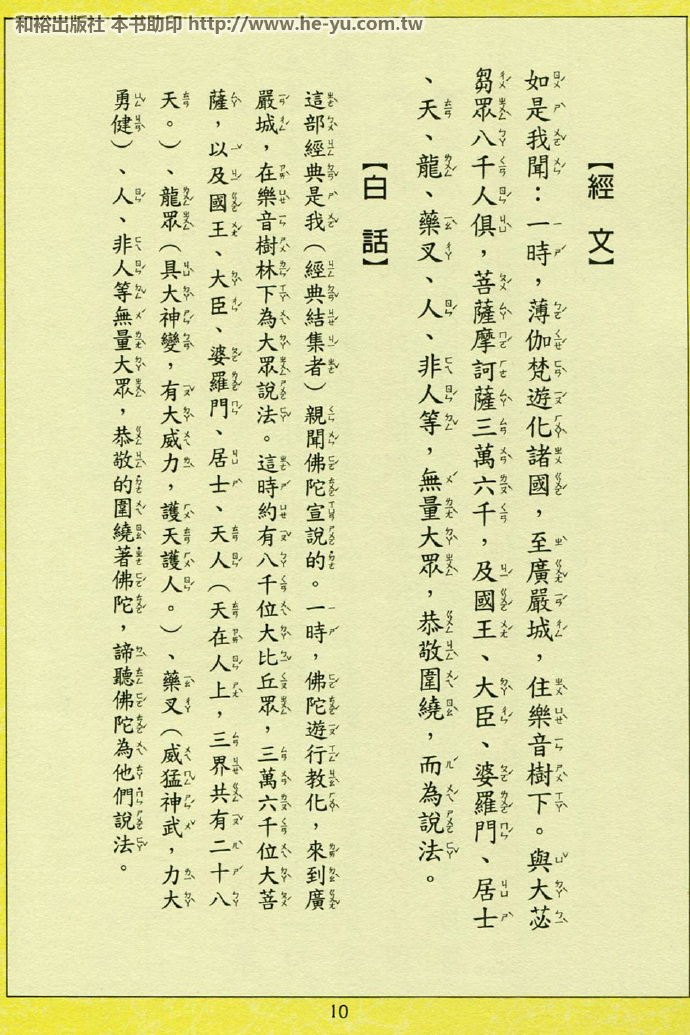 和裕出版社 本书助印 http://www.he-yu.com.tw
【經文】
如是我聞：一時，薄伽梵遊化諸國，至廣嚴城，住樂音樹下。與大苾
芻眾八千人俱，菩薩摩訶薩三萬六千，及國王、大臣、婆羅門、居士
、天、龍、藥叉、人、非人等，無量大眾，恭敬圍繞，而為說法。
【白話】
這部經典是我（經典結集者）親聞佛陀宣說的。一時，佛陀遊行教化，來到廣
嚴城，在樂音樹林下為大眾說法。這時約有八千位大比丘眾，三萬六千位大菩
薩，以及國王、大臣、婆羅門、居士、天人（天在人上，三界共有二十八
天。）、龍眾（具大神變，有大威力，護天護人。）、藥叉（威猛神武，力大
勇健）、人、非人等無量大眾，恭敬的圍繞著佛陀，諦聽佛陀為他們說法。
10